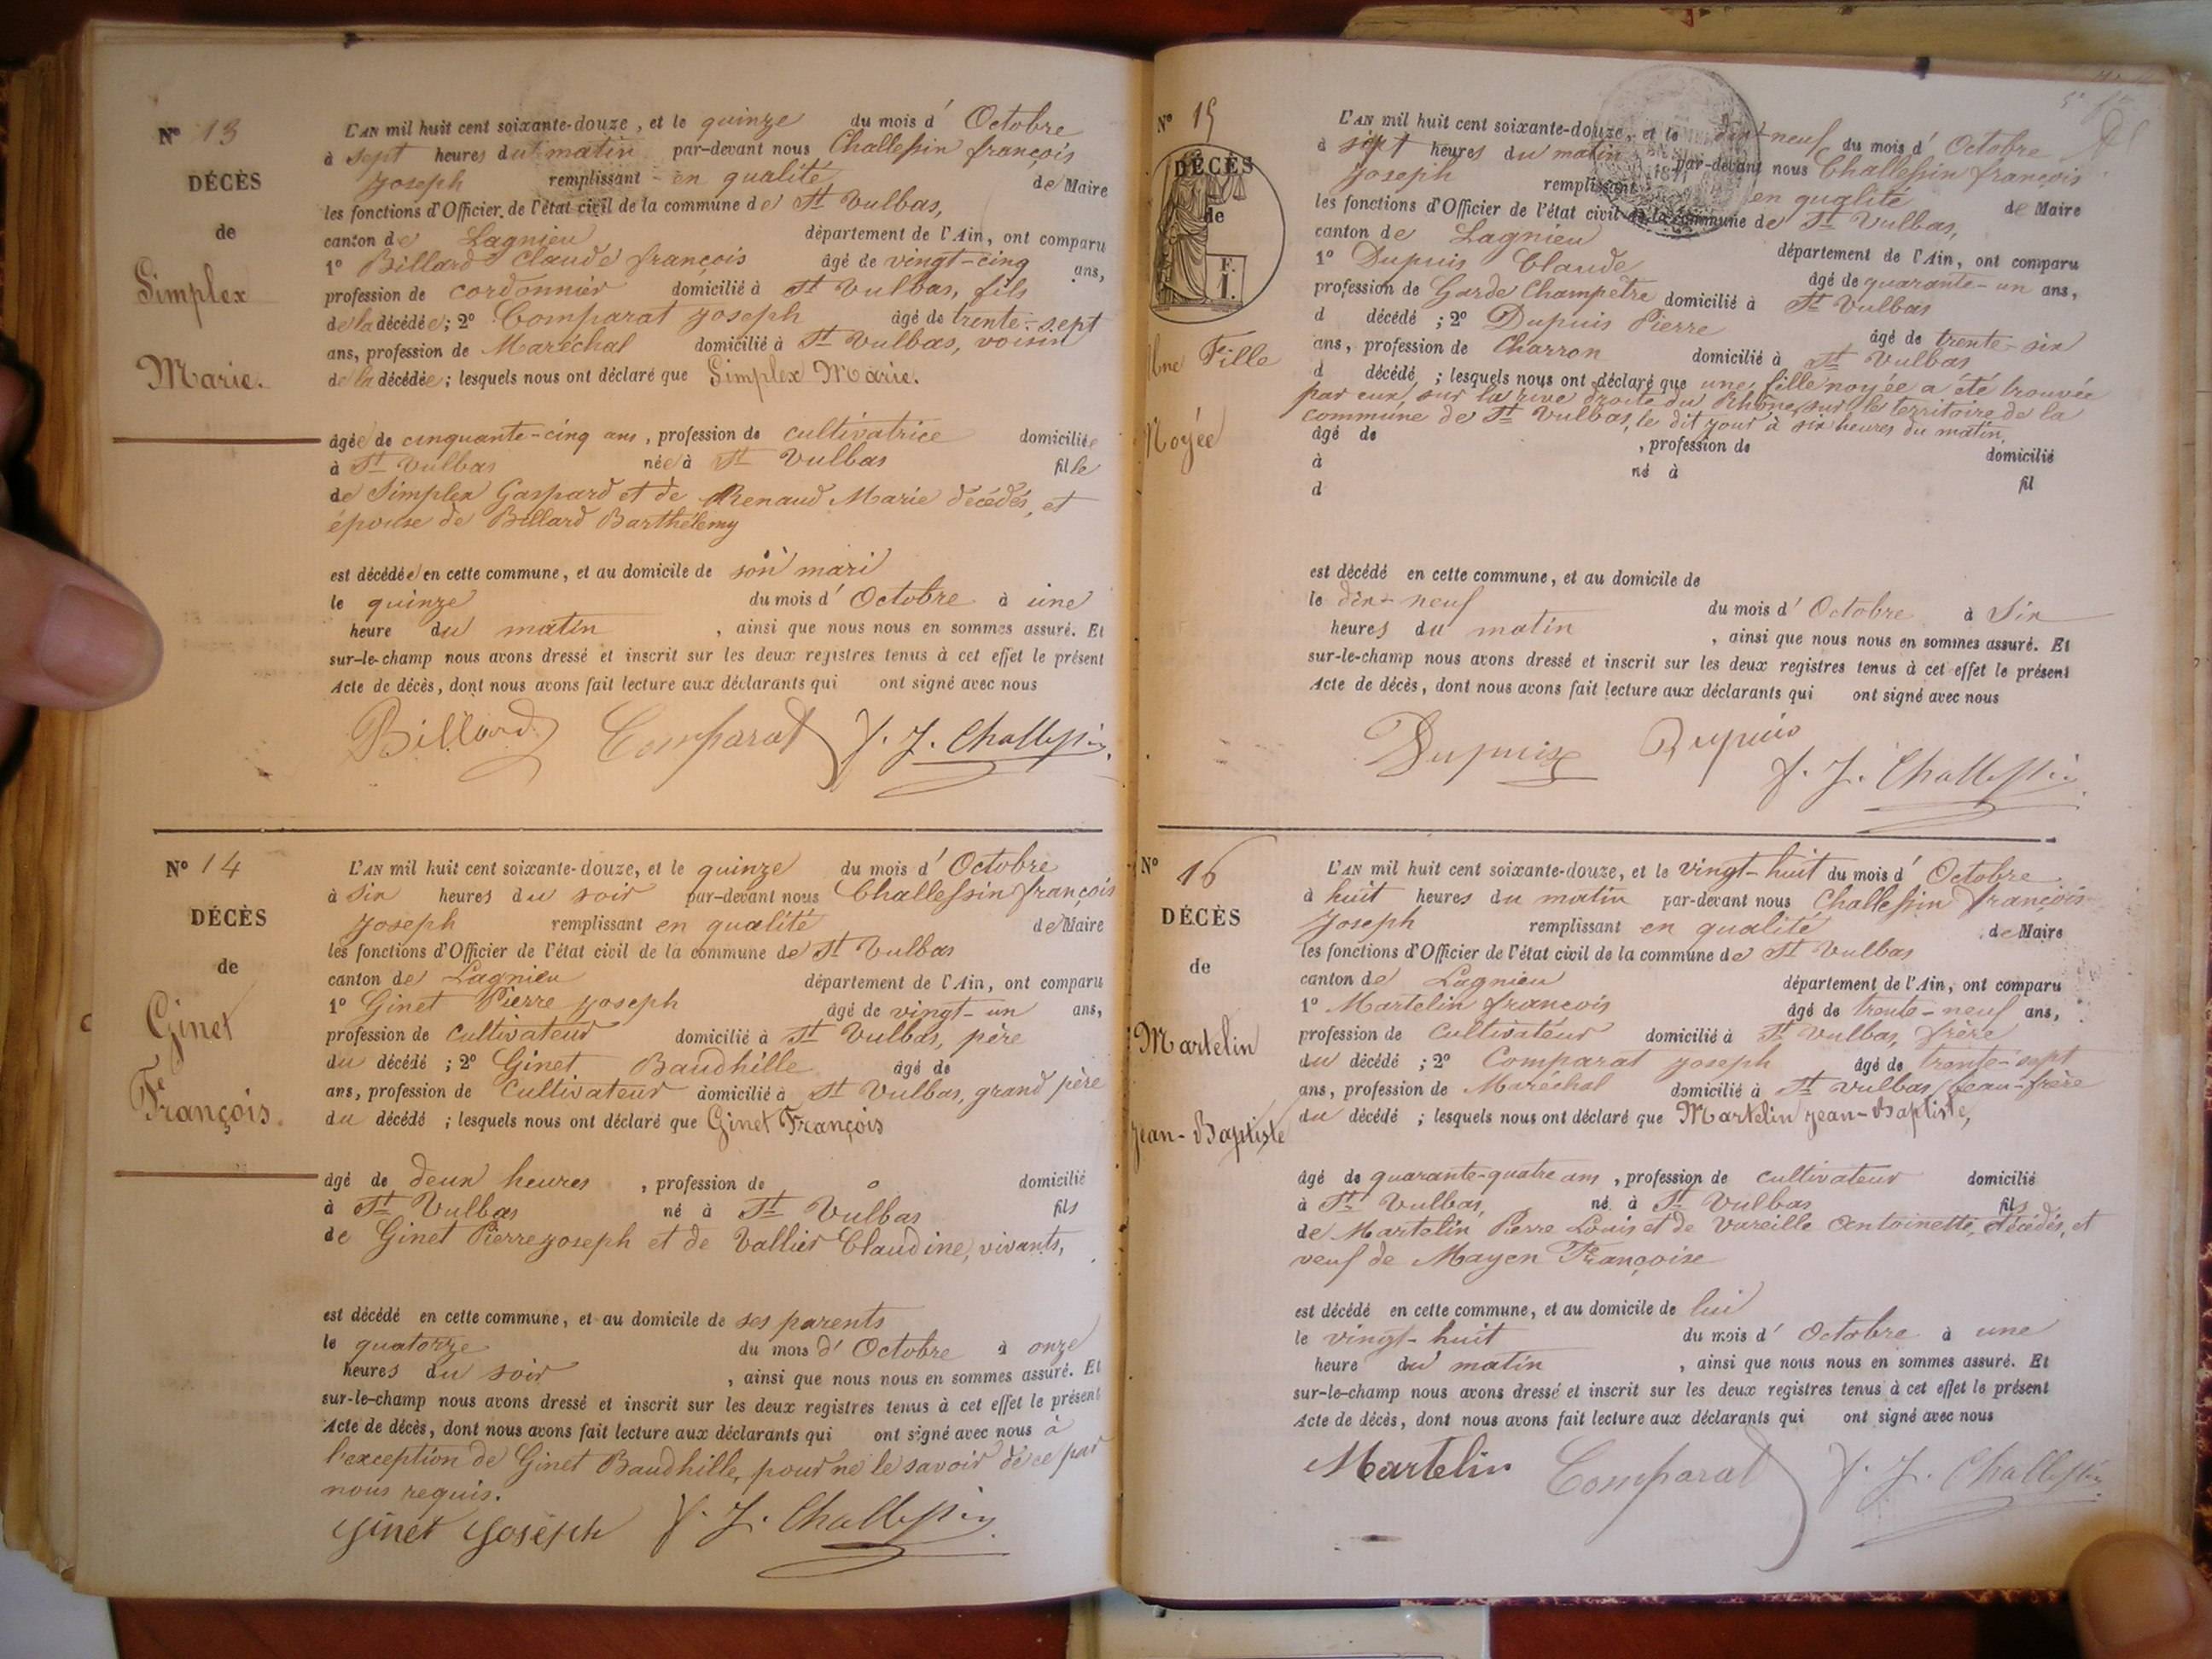 N° 13
DÉCÈS
de
Simplex
Marie.
L'AN mil huit cent soixante-douze, et le quinze du mois d'Octobre
à sept heures du matin par-devant nous Challessin françois
Joseph remplissant en qualité de Maire
les fonctions d'Officier de l'état civil de la commune de St Vulbas,
canton de Lagnieu département de l'Ain, ont comparu
1° Billard Claude françois âgé de vingt-cinq ans,
profession de cordonnier domicilié à St Vulbas, fils
de la décédée; 2° Comparat Joseph âgé de trente-sept
ans, profession de Maréchal domicilié à St Vulbas, voisin
de la décédée; lesquels nous ont déclaré que Simplex Marie.
âgée de cinquante-cinq ans, profession de cultivatrice domiciliée
à St Vulbas née à St Vulbas fille
de Simplex Gaspard et de Renaud Marie décédés, et
épouse de Billard Barthélemy
est décédée en cette commune, et au domicile de son mari
le quinze du mois d'Octobre à une
heure du matin, ainsi que nous nous en sommes assuré. Et
sur-le-champ nous avons dressé et inscrit sur les deux registres tenus à cet effet le présent
Acte de décès, dont nous avons fait lecture aux déclarants qui ont signé avec nous
Billard Comparat f. J. Challessin
N° 14
DÉCÈS
de
Ginet
François.
L'AN mil huit cent soixante-douze, et le quinze du mois d'Octobre
à six heures du soir par-devant nous Challessin françois
Joseph remplissant en qualité de Maire
les fonctions d'Officier de l'état civil de la commune de St Vulbas
canton de Lagnieu département de l'Ain, ont comparu
1° Ginet Pierre Joseph âgé de vingt-un ans,
profession de Cultivateur domicilié à St Vulbas, père
du décédé; 2° Ginet Baudhille âgé de
ans, profession de Cultivateur domicilié à St Vulbas, grand père
du décédé; lesquels nous ont déclaré que Ginet François
âgé de deux heures, profession de o domicilié
à St Vulbas né à St Vulbas fils
de Ginet Pierre Joseph et de Vallier Claudine, vivants,
est décédé en cette commune, et au domicile de ses parents
le quatorze du mois d'Octobre à onze
heures du soir, ainsi que nous nous en sommes assuré. Et
sur-le-champ nous avons dressé et inscrit sur les deux registres tenus à cet effet le présent
Acte de décès, dont nous avons fait lecture aux déclarants qui ont signé avec nous à
l'exception de Ginet Baudhille, pour ne le savoir de ce par
nous requis.
Ginet Joseph f. J. Challessin
N° 15
DÉCÈS
de
F.
1.
Une Fille
Noyée
L'AN mil huit cent soixante-douze, et le dix-neuf du mois d'Octobre
à sept heures du matin par-devant nous Challessin françois
Joseph remplissant en qualité de Maire
les fonctions d'Officier de l'état civil de la commune de St Vulbas,
canton de Lagnieu département de l'Ain, ont comparu
1° Dupuis Claude âgé de quarante-un ans,
profession de Garde Champetre domicilié à St Vulbas
d décédé; 2° Dupuis Pierre âgé de trente-six
ans, profession de Charron domicilié à St Vulbas
d décédé; lesquels nous ont déclaré que une fille noyée a été trouvée
par eux sur la rive droite du Rhône, sur le territoire de la
commune de St Vulbas, le dit jour à six heures du matin,
âgé de , profession de domicilié
à né à fil
d
est décédé en cette commune, et au domicile de
le dix-neuf du mois d'Octobre à six
heures du matin, ainsi que nous nous en sommes assuré. Et
sur-le-champ nous avons dressé et inscrit sur les deux registres tenus à cet effet le présent
Acte de décès, dont nous avons fait lecture aux déclarants qui ont signé avec nous
Dupuis Dupuis
f. J. Challessin
N° 16
DÉCÈS
de
Martelin
Jean-Baptiste
L'AN mil huit cent soixante-douze, et le vingt-huit du mois d'Octobre
à huit heures du matin par-devant nous Challessin françois
Joseph remplissant en qualité de Maire
les fonctions d'Officier de l'état civil de la commune de St Vulbas
canton de Lagnieu département de l'Ain, ont comparu
1° Martelin francois âgé de trente-neuf ans,
profession de Cultivateur domicilié à St Vulbas, frère
du décédé; 2° Comparat Joseph âgé de trente-sept
ans, profession de Maréchal domicilié à St Vulbas, beau-frère
du décédé; lesquels nous ont déclaré que Martelin Jean-Baptiste,
âgé de quarante-quatre ans, profession de cultivateur domicilié
à St Vulbas, né à St Vulbas fils
de Martelin Pierre Louis et de Vareille Antoinette, décédés, et
veuf de Mayen Françoise
est décédé en cette commune, et au domicile de lui
le vingt-huit du mois d'Octobre à une
heure du matin, ainsi que nous nous en sommes assuré. Et
sur-le-champ nous avons dressé et inscrit sur les deux registres tenus à cet effet le présent
Acte de décès, dont nous avons fait lecture aux déclarants qui ont signé avec nous
Martelin Comparat f. J. Challessin